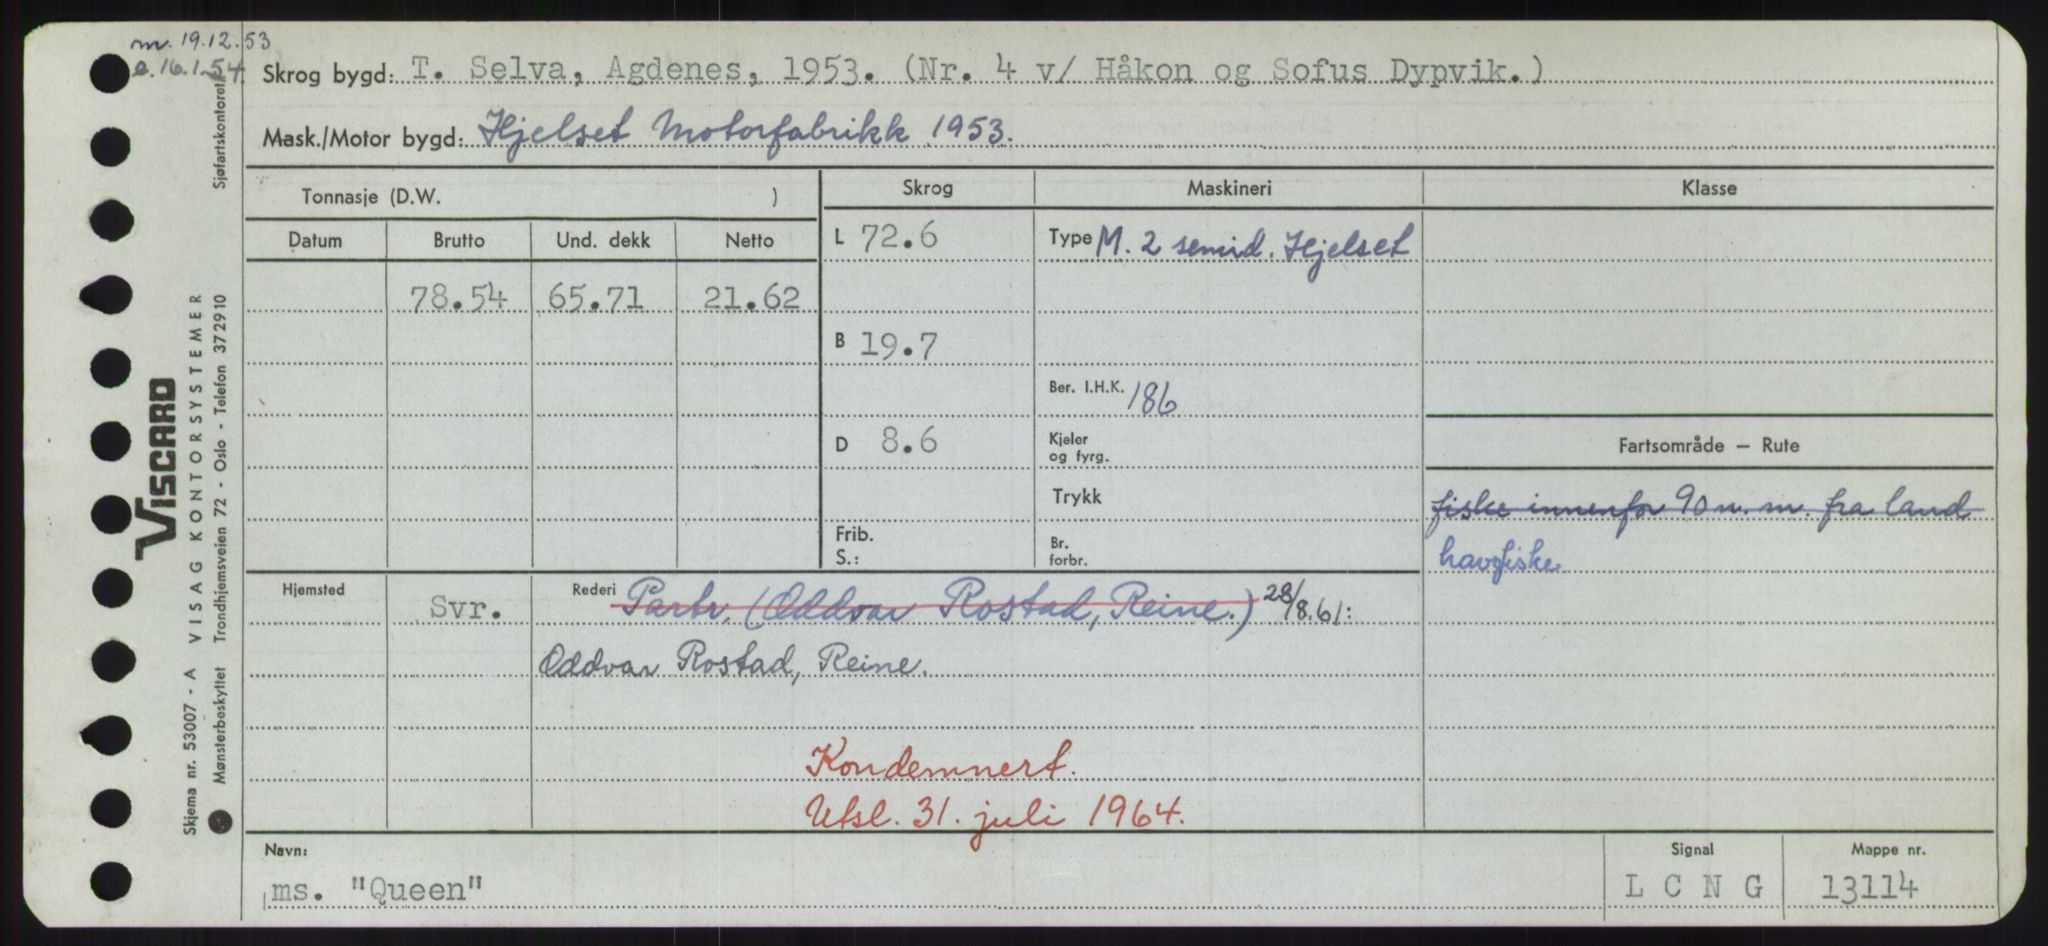 m. 19.12.53
e. 16.1.54
Skrog bygd: T. Selva, Agdenes, 1953. (Nr. 4 v/ Håkon og Sofus Dypvik.)
Mask./Motor bygd: Hjelset Motorfabrikk 1953.
Tonnasje (D.W. )
Skrog
Maskineri
Klasse
Datum
Brutto
Und. dekk
Netto
L 72.6
Type M. 2 semid. Hjelset
78.54
65.71
21.62
B 19.7
Ber. I.H.K. 186
D 8.6
Kjeler
og fyrg.
Fartsområde — Rute
Trykk
fiske innenfor 90 n. m. fra land
Frib.
S.:
Br.
forbr.
havfiske
Hjemsted
Svr.
Rederi
Partr. (Oddvar Rostad, Reine.) 28/8.61:
Oddvar Rostad, Reine.
Kondemnert.
Utsl. 31. juli 1964.
Navn:
ms. "Queen"
Signal
LCNG
Mappe nr.
13114
Sjøfartskontoret
VISCARD
VISAG KONTORSYSTEMER
Skjema nr. 53007 - A
Mønsterbeskyttet Trondhjemsveien 72 - Oslo - Telefon 372910